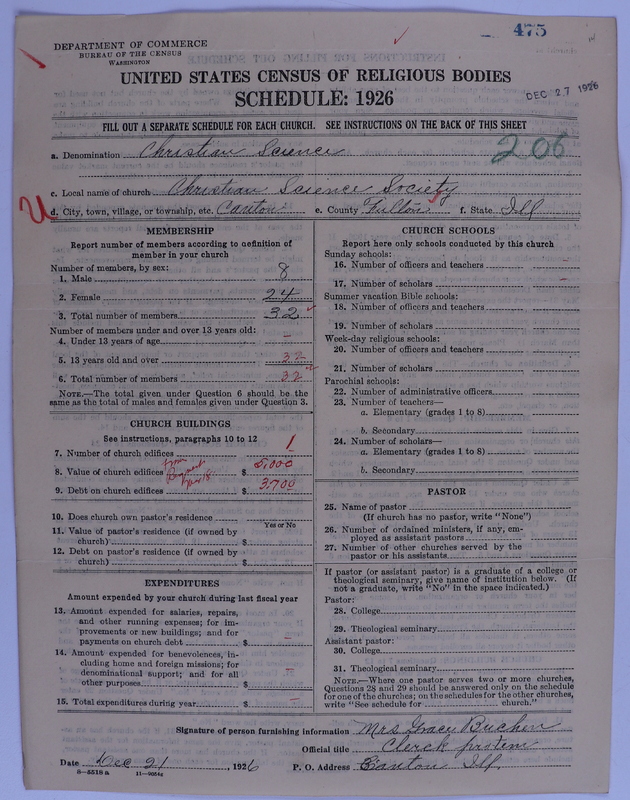 475
DEPARTMENT OF COMMERCE
BUREAU OF THE CENSUS
WASHINGTON
UNITED STATES CENSUS OF RELIGIOUS BODIES
SCHEDULE: 1926
DEC 27 1926
FILL OUT A SEPARATE SCHEDULE FOR EACH CHURCH. SEE INSTRUCTIONS ON THE BACK OF THIS SHEET
a. Denomination Christian Science
206
c. Local name of church Christian Science Society
U
d. City, town, village, or township, etc. Canton e. County Fulton f. State Ill
MEMBERSHIP
Report number of members according to definition of
member in your church
Number of members, by sex:
1. Male 8
2. Female 24
3. Total number of members 32
Number of members under and over 13 years old:
4. Under 13 years of age –
5. 13 years old and over 32
6. Total number of members 32
NOTE.—The total given under Question 6 should be
same as the total of males and females given under Question 3.
CHURCH BUILDINGS
See instructions, paragraphs 10 to 12
7. Number of church edifices 1
8. Value of church edifices $ 5,000
9. Debt on church edifices $ 3,700
10. Does church own pastor's residence
Yes or No
11. Value of pastor's residence (if owned by
church) $
12. Debt on pastor's residence (if owned by
church) $
EXPENDITURES
Amount expended by your church during last fiscal year
13. Amount expended for salaries, repairs,
and other running expenses; for im-
provements or new buildings; and for
payments on church debt $ –
14. Amount expended for benevolences, in-
cluding home and foreign missions; for
denominational support; and for all
other purposes $ –
15. Total expenditures during year $ –
CHURCH SCHOOLS
Report here only schools conducted by this church
Sunday schools:
16. Number of officers and teachers –
17. Number of scholars –
Summer vacation Bible schools:
18. Number of officers and teachers
19. Number of scholars
Week-day religious schools:
20. Number of officers and teachers
21. Number of scholars
Parochial schools:
22. Number of administrative officers
23. Number of teachers—
a. Elementary (grades 1 to 8)
b. Secondary
24. Number of scholars—
a. Elementary (grades 1 to 8)
b. Secondary
PASTOR
25. Name of pastor
(If church has no pastor, write "None")
26. Number of ordained ministers, if any, em-
ployed as assistant pastors
27. Number of other churches served by the
pastor or his assistants
If pastor (or assistant pastor) is a graduate of a college or
theological seminary, give name of institution below. (If
not a graduate, write "No" in the space indicated.)
Pastor:
28. College
29. Theological seminary
Assistant pastor:
30. College
31. Theological seminary
NOTE.—Where one pastor serves two or more churches,
Questions 28 and 29 should be answered only on the schedule
for one of the churches; on the schedules for the other churches,
write "See schedule for church."
Signature of person furnishing information Mrs Grace
Official title Clerck protem
Date Dec 21, 1926 P. O. Address Canton Ill.
8—5518 a 11—9054